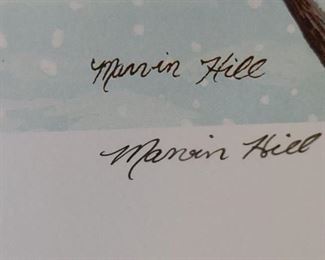 Marvin Hill
Marvin Hill